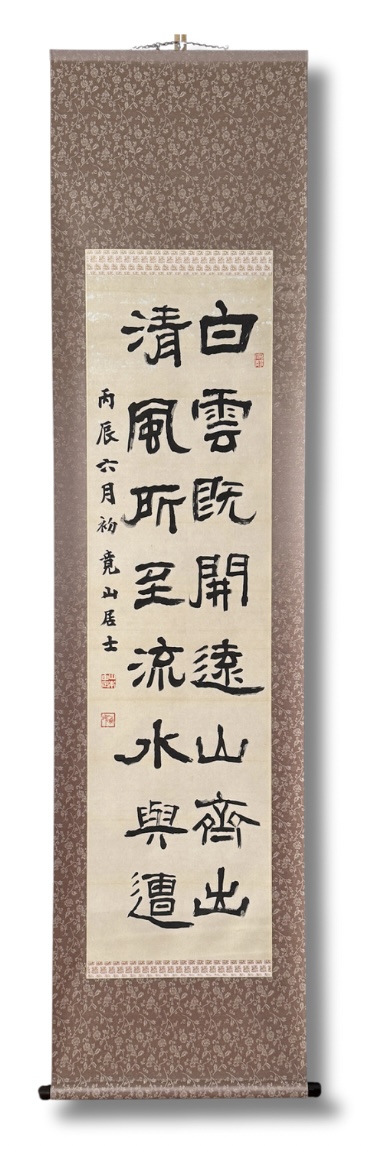 白雲既開遠山齊出
清風所至流水與遭
丙辰六月初竟山居士